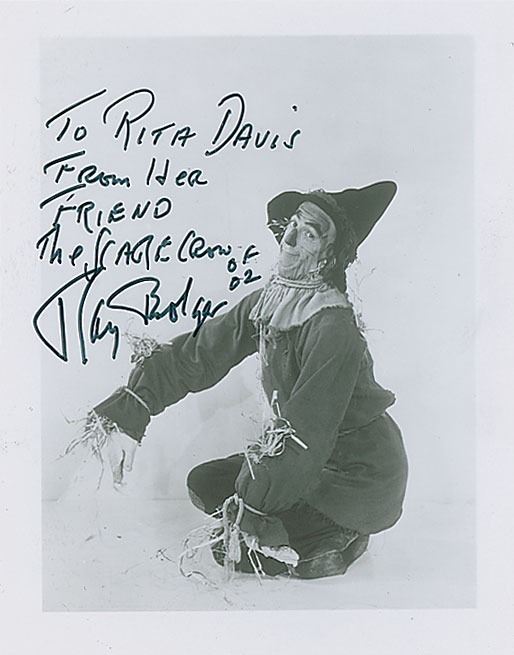 To Rita Davis
From Her
Friend
The Scarecrow of
OZ
Ray Bolger